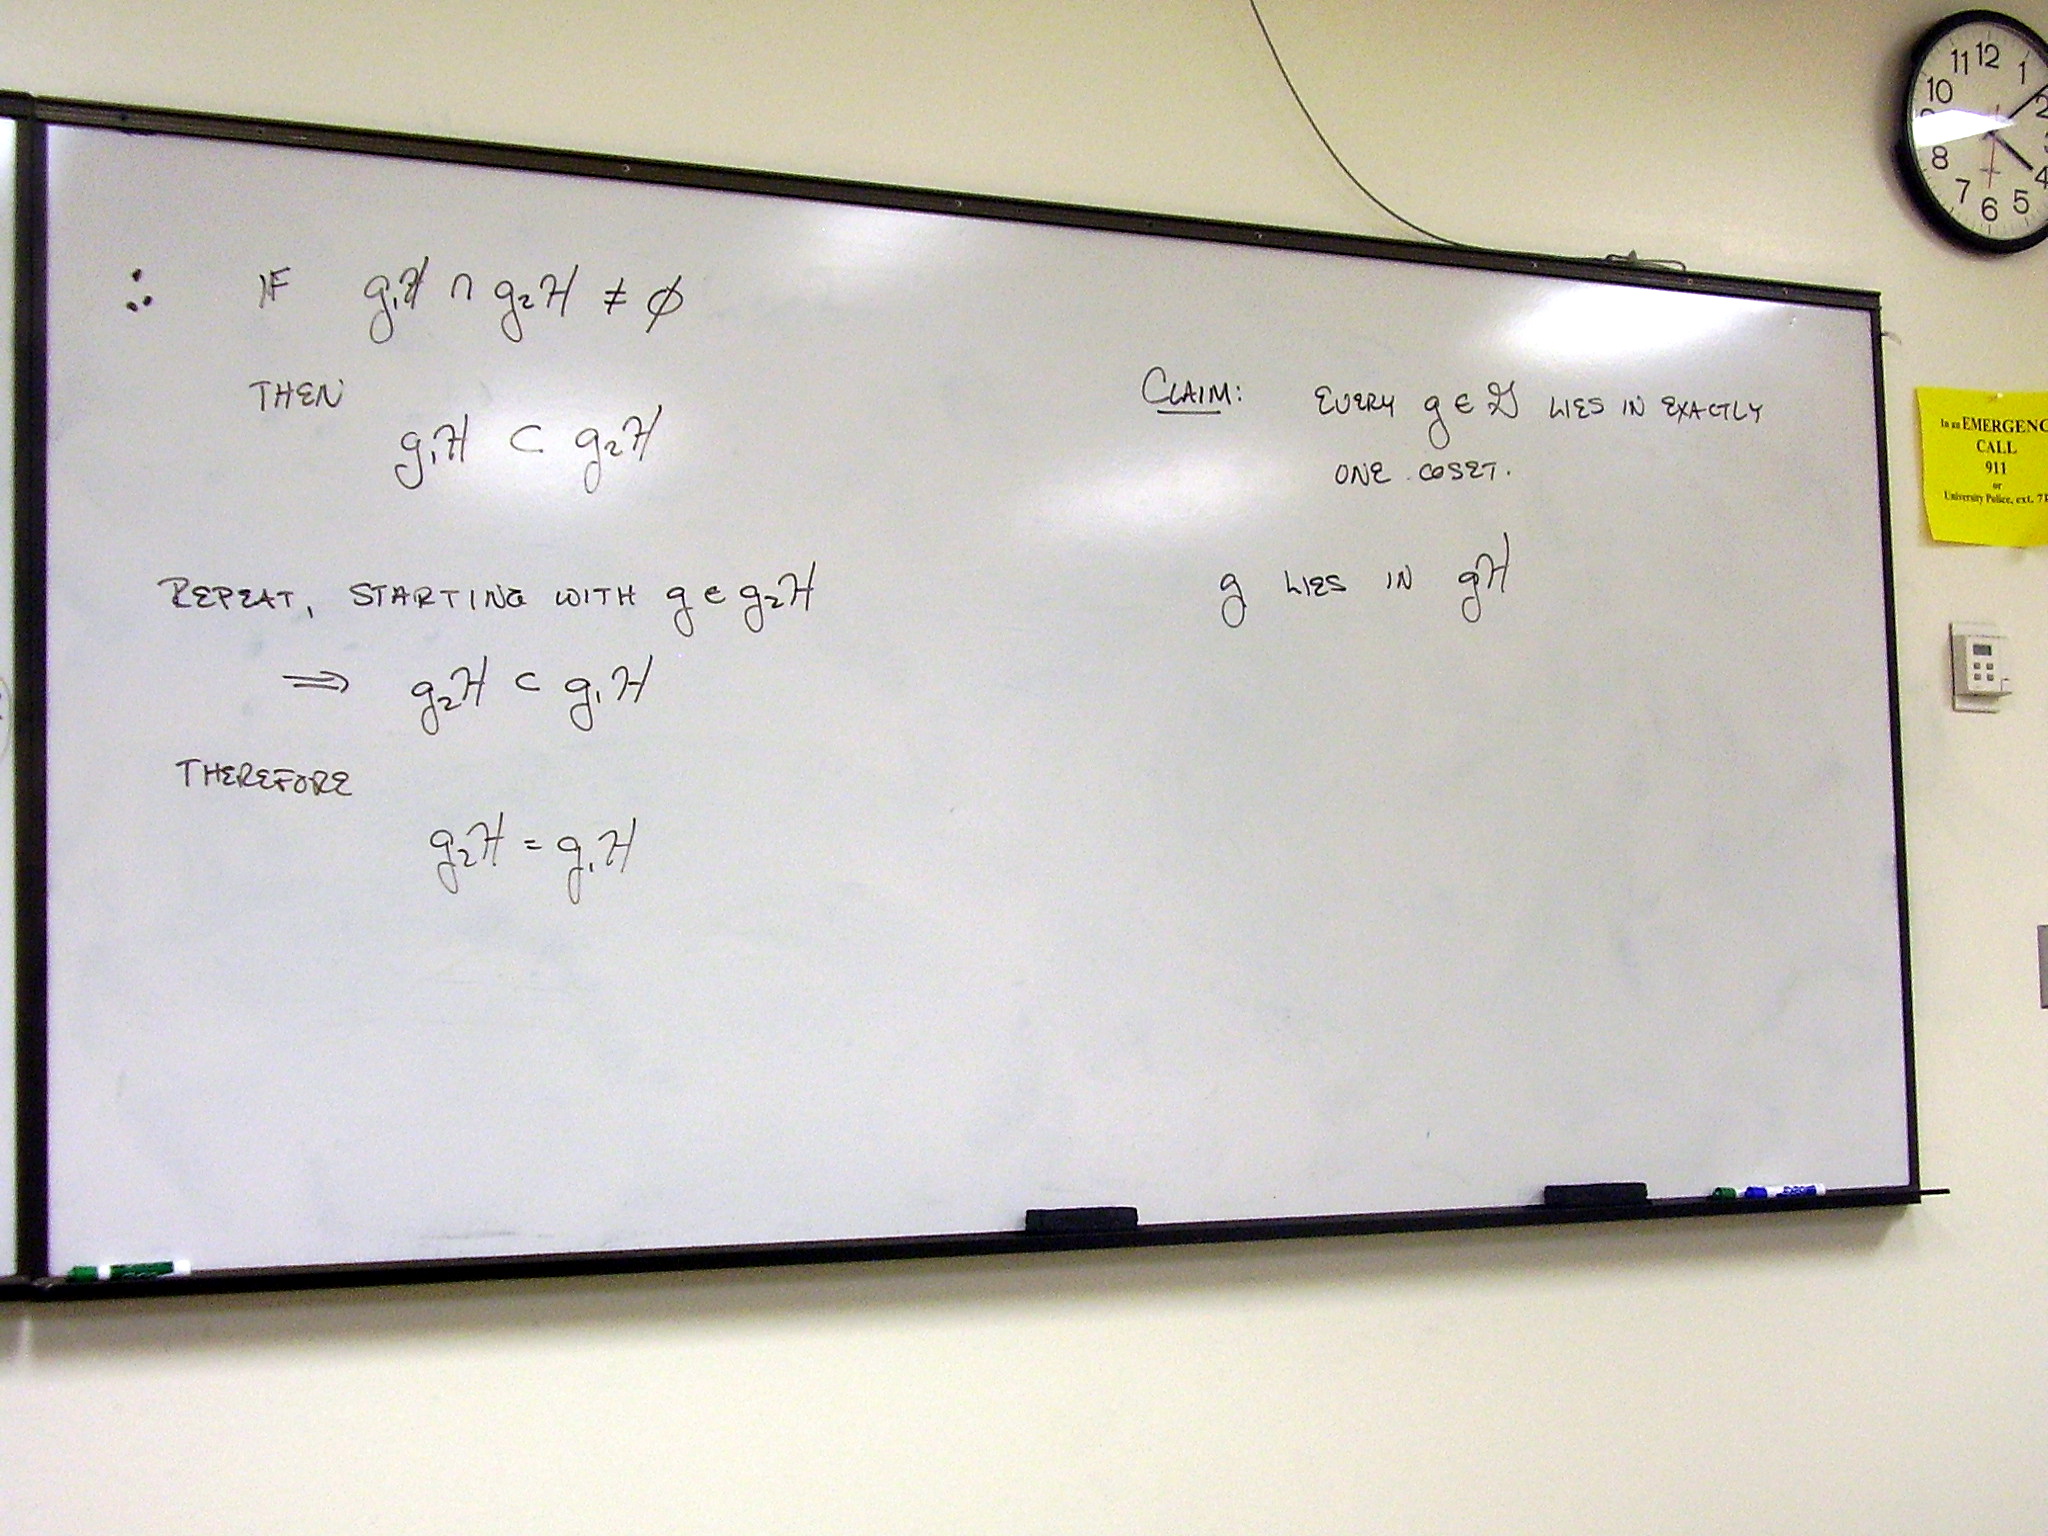 ∴ IF g₁H ∩ g₂H ≠ ∅
THEN
g₁H ⊂ g₂H
REPEAT, STARTING WITH g ∈ g₂H
⇒ g₂H ⊂ g₁H
THEREFORE
g₂H = g₁H
CLAIM: EVERY g ∈ G LIES IN EXACTLY
ONE COSET.
g LIES IN gH
11 12 1
10 2
8 4
7 6 5
In an EMERGENC
CALL
911
or
University Police, ext.